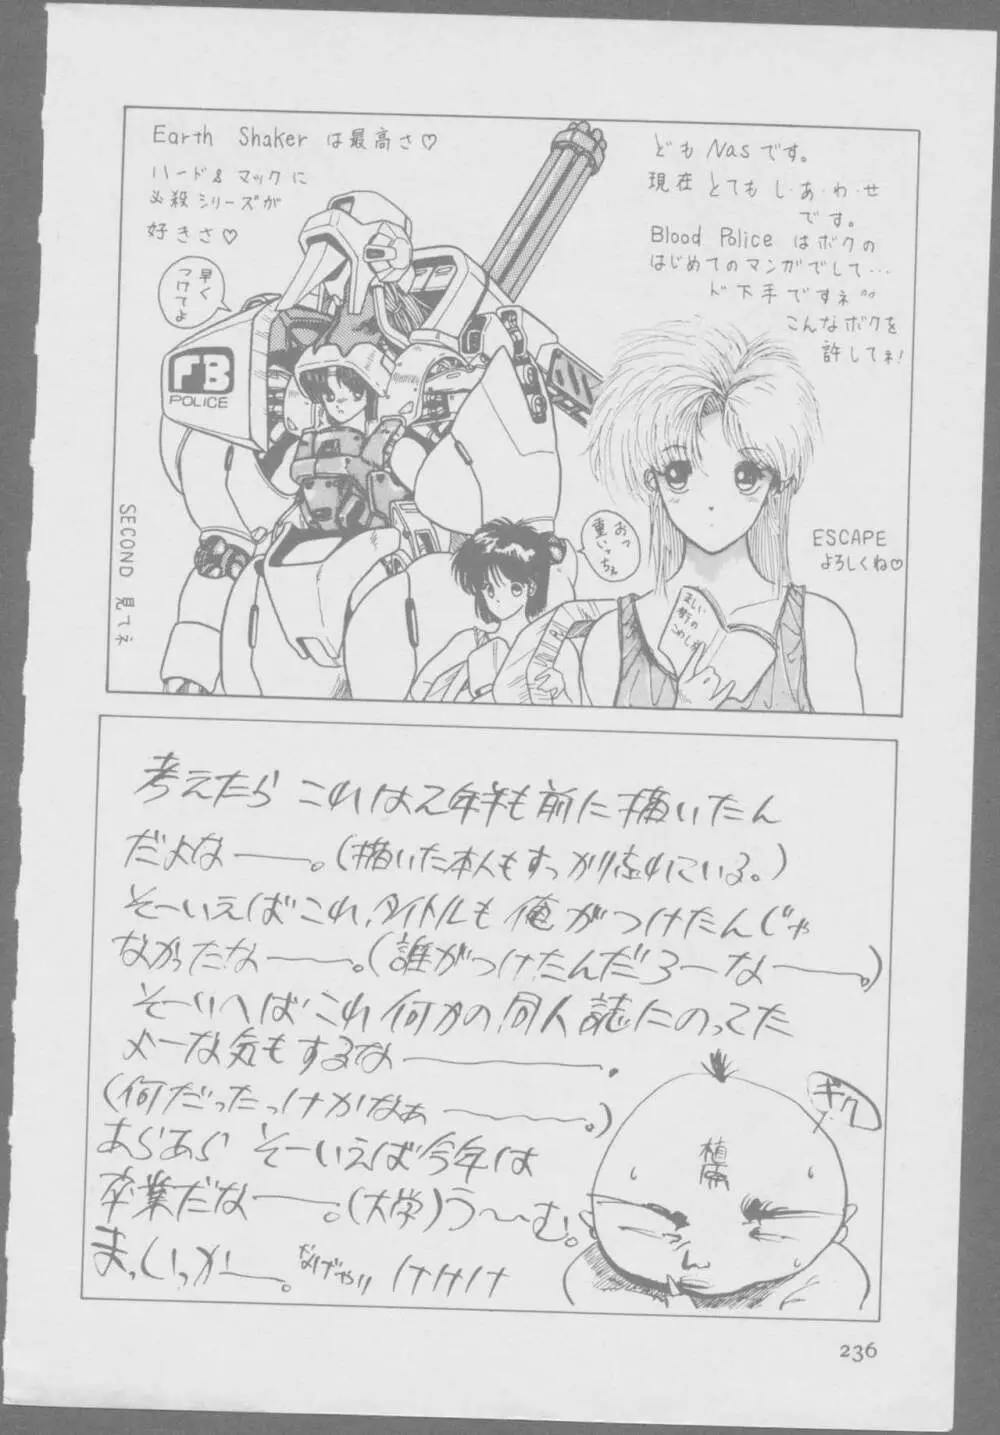 Earth Shaker は最高さ♡
ハード&マックに
必殺シリーズが
好きさ♡
どもNasです。
現在とてもし・あ・わ・せ
です。
Blood Policeはボクの
はじめてのマンガでして…
ド下手ですネ〃
こんなボクを
許してネ!
早く
つけてよ
FB
POLICE
SECOND 見てネ
おっ
重いっちぇ
ESCAPE
よろしくね♡
正しい
街の
こわし方
考えたら これは2年半も前に描いたん
だよなー――。(描いた本人もすっかり忘れている。)
そーいえばこれ、タイトルも俺がつけたんじゃ
なかったなー――。(誰がつけたんだろーなー――。)
そーいへばこれ何かの同人誌にのってた
よーな気もするなー――――。
(何だったっけかなぁー―――。)
あらあら そーいえば今年は
卒業だなー――。(大学)う〜〜む。
まっいっかー―。 なげやり けけけけ
ギク
236